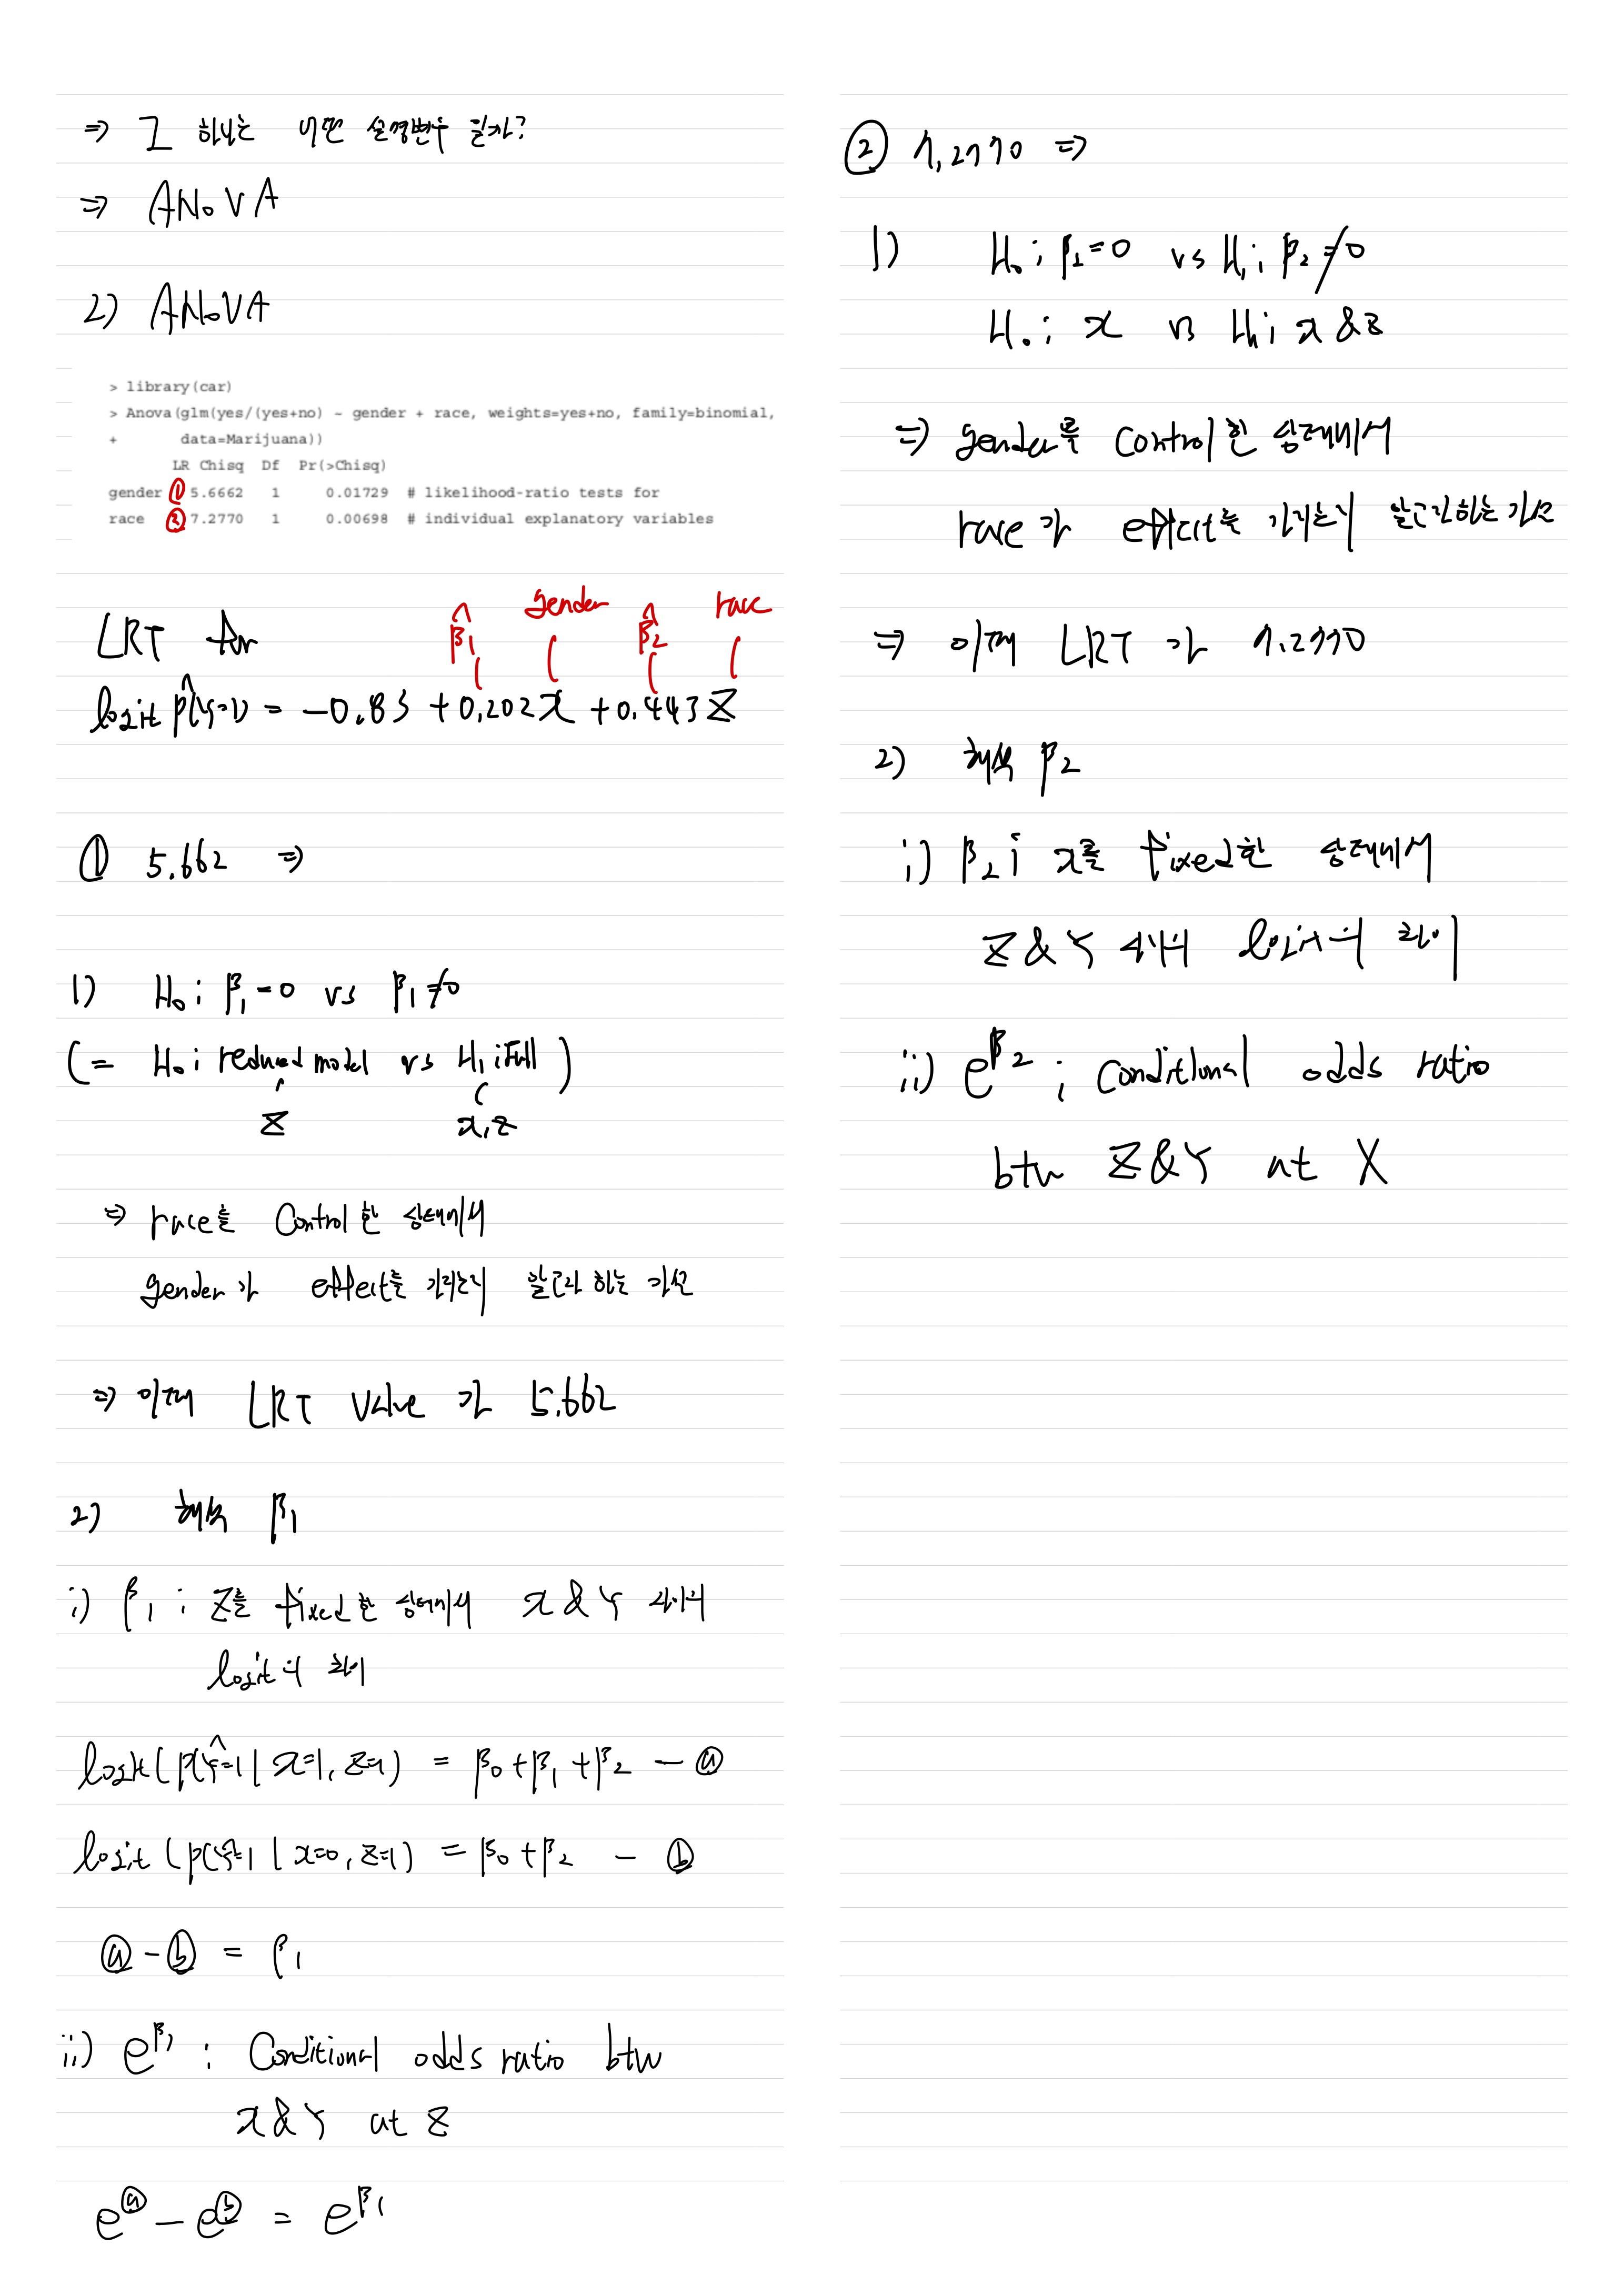 ⇒ 그 하나는 어떤 설명변수 일까?
⇒ ANOVA
2) ANOVA
> library(car)
> Anova(glm(yes/(yes+no) ~ gender + race, weights=yes+no, family=binomial,
+ data=Marijuana))
LR Chisq Df Pr(>Chisq)
gender ① 5.6662 1 0.01729 # likelihood-ratio tests for
race ② 7.2770 1 0.00698 # individual explanatory variables
β̂₁ gender β̂₂ race
LRT for
logit p̂(Y=1) = -0.83 + 0.202x + 0.443z
① 5.662 ⇒
1) H₀ ; β₁=0 vs β₁≠0
(= H₀ ; reduced model vs H₁ ; Full)
z x, z
⇒ race를 control 한 상태에서
gender가 effect를 가지는지 알고자 하는 가설
⇒ 이때 LRT value 가 5.662
2) 해석 β₁
i) β₁ ; z를 fixed 한 상태에서 x & Y 사이의
logit의 차이
logit(p(Ŷ=1 | x=1, z=1) = β₀+β₁+β₂ - ⓐ
logit (p(Ŷ=1 | x=0, z=1) = β₀+β₂ - ⓑ
ⓐ - ⓑ = β₁
ii) e^β₁ : Conditional odds ratio btw
x & Y at z
e^ⓐ - e^ⓑ = e^β₁
② 7.2770 ⇒
1) H₀ ; β₂=0 vs H₁ ; β₂≠0
H₀ ; x vs H₁ ; x & z
⇒ gender를 control한 상태에서
race 가 effect를 가지는지 알고자하는 가설
⇒ 이때 LRT 가 7.2770
2) 해석 β₂
i) β₂ ; x를 fixed한 상태에서
z & Y 사이 logit의 차이
ii) e^β₂ ; Conditional odds ratio
btw z & Y at X